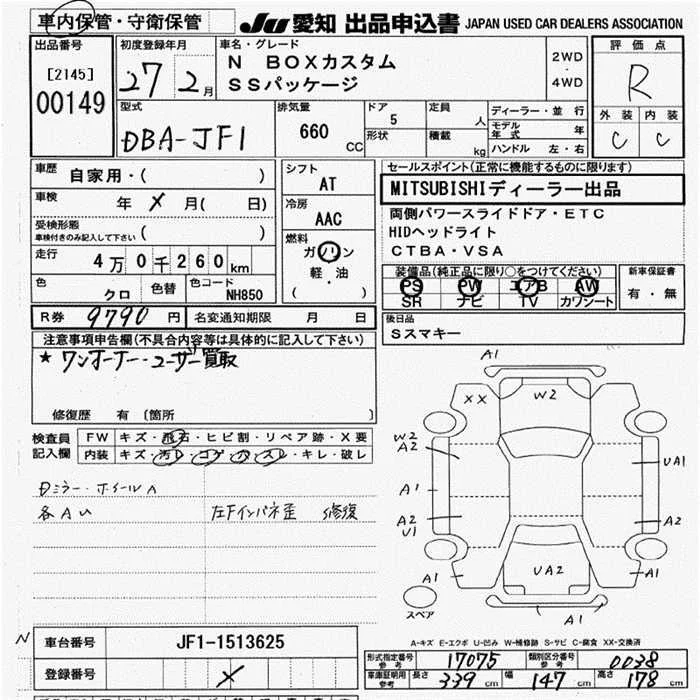 車内保管・守衛保管
JU 愛知 出品申込書 JAPAN USED CAR DEALERS ASSOCIATION
出品番号 [2145] 00149
初度登録年月 27 2月
車名・グレード N BOXカスタム SSパッケージ
2WD・4WD
評価点 R
外装 内装
C C
型式 DBA-JF1
排気量 660 CC
ドア 5
形状
定員 人
積載 kg
ディーラー・並行
モデル年式 年
ハンドル 左・右
車歴 自家用・( )
車検 年 X 月( 日)
受検形態 車検付きのみ記入して下さい ( )
走行 4万0千260km
色 クロ 色替 色コード NH850
シフト AT
冷房 AAC
燃料 ガソリン 軽・油 ( )
セールスポイント(正常に機能するものに限ります)
MITSUBISHIディーラー出品
両側パワースライドドア・ETC
HIDヘッドライト
CTBA・VSA
装備品(純正品に限り○をつけてください)
PS PW エアB AW
SR ナビ TV カワシート
新車保証書 有・無
R券 9790 円 名変通知期限 月 日
後日品
Sスマキー
注意事項申告欄(不具合内容等は具体的に記入して下さい)
★ワンオーナー・ユーザー買取
修復歴 有 〔箇所 〕
検査員記入欄 FW キズ・飛石・ヒビ割・リペア跡・X要
内装 キズ・汚レ・コゲ・穴・スレ・キレ・破レ
ミラー・ホイールA
各AU 左Fインパネ歪 S修復
A1
XX W2
W2
A2
UA1
A1
A2
U1
A2
A1 UA2 A1
スペア A1
A-キズ E-エクボ U-凹み W-補修跡 S-サビ C-腐食 XX-交換済
N 車台番号 JF1-1513625
登録番号 X
形式指定番号 参考 17075 類別区分番号 参考 0038
車庫証明用 参考 長さ 339 cm 幅 147 cm 高さ 178 cm